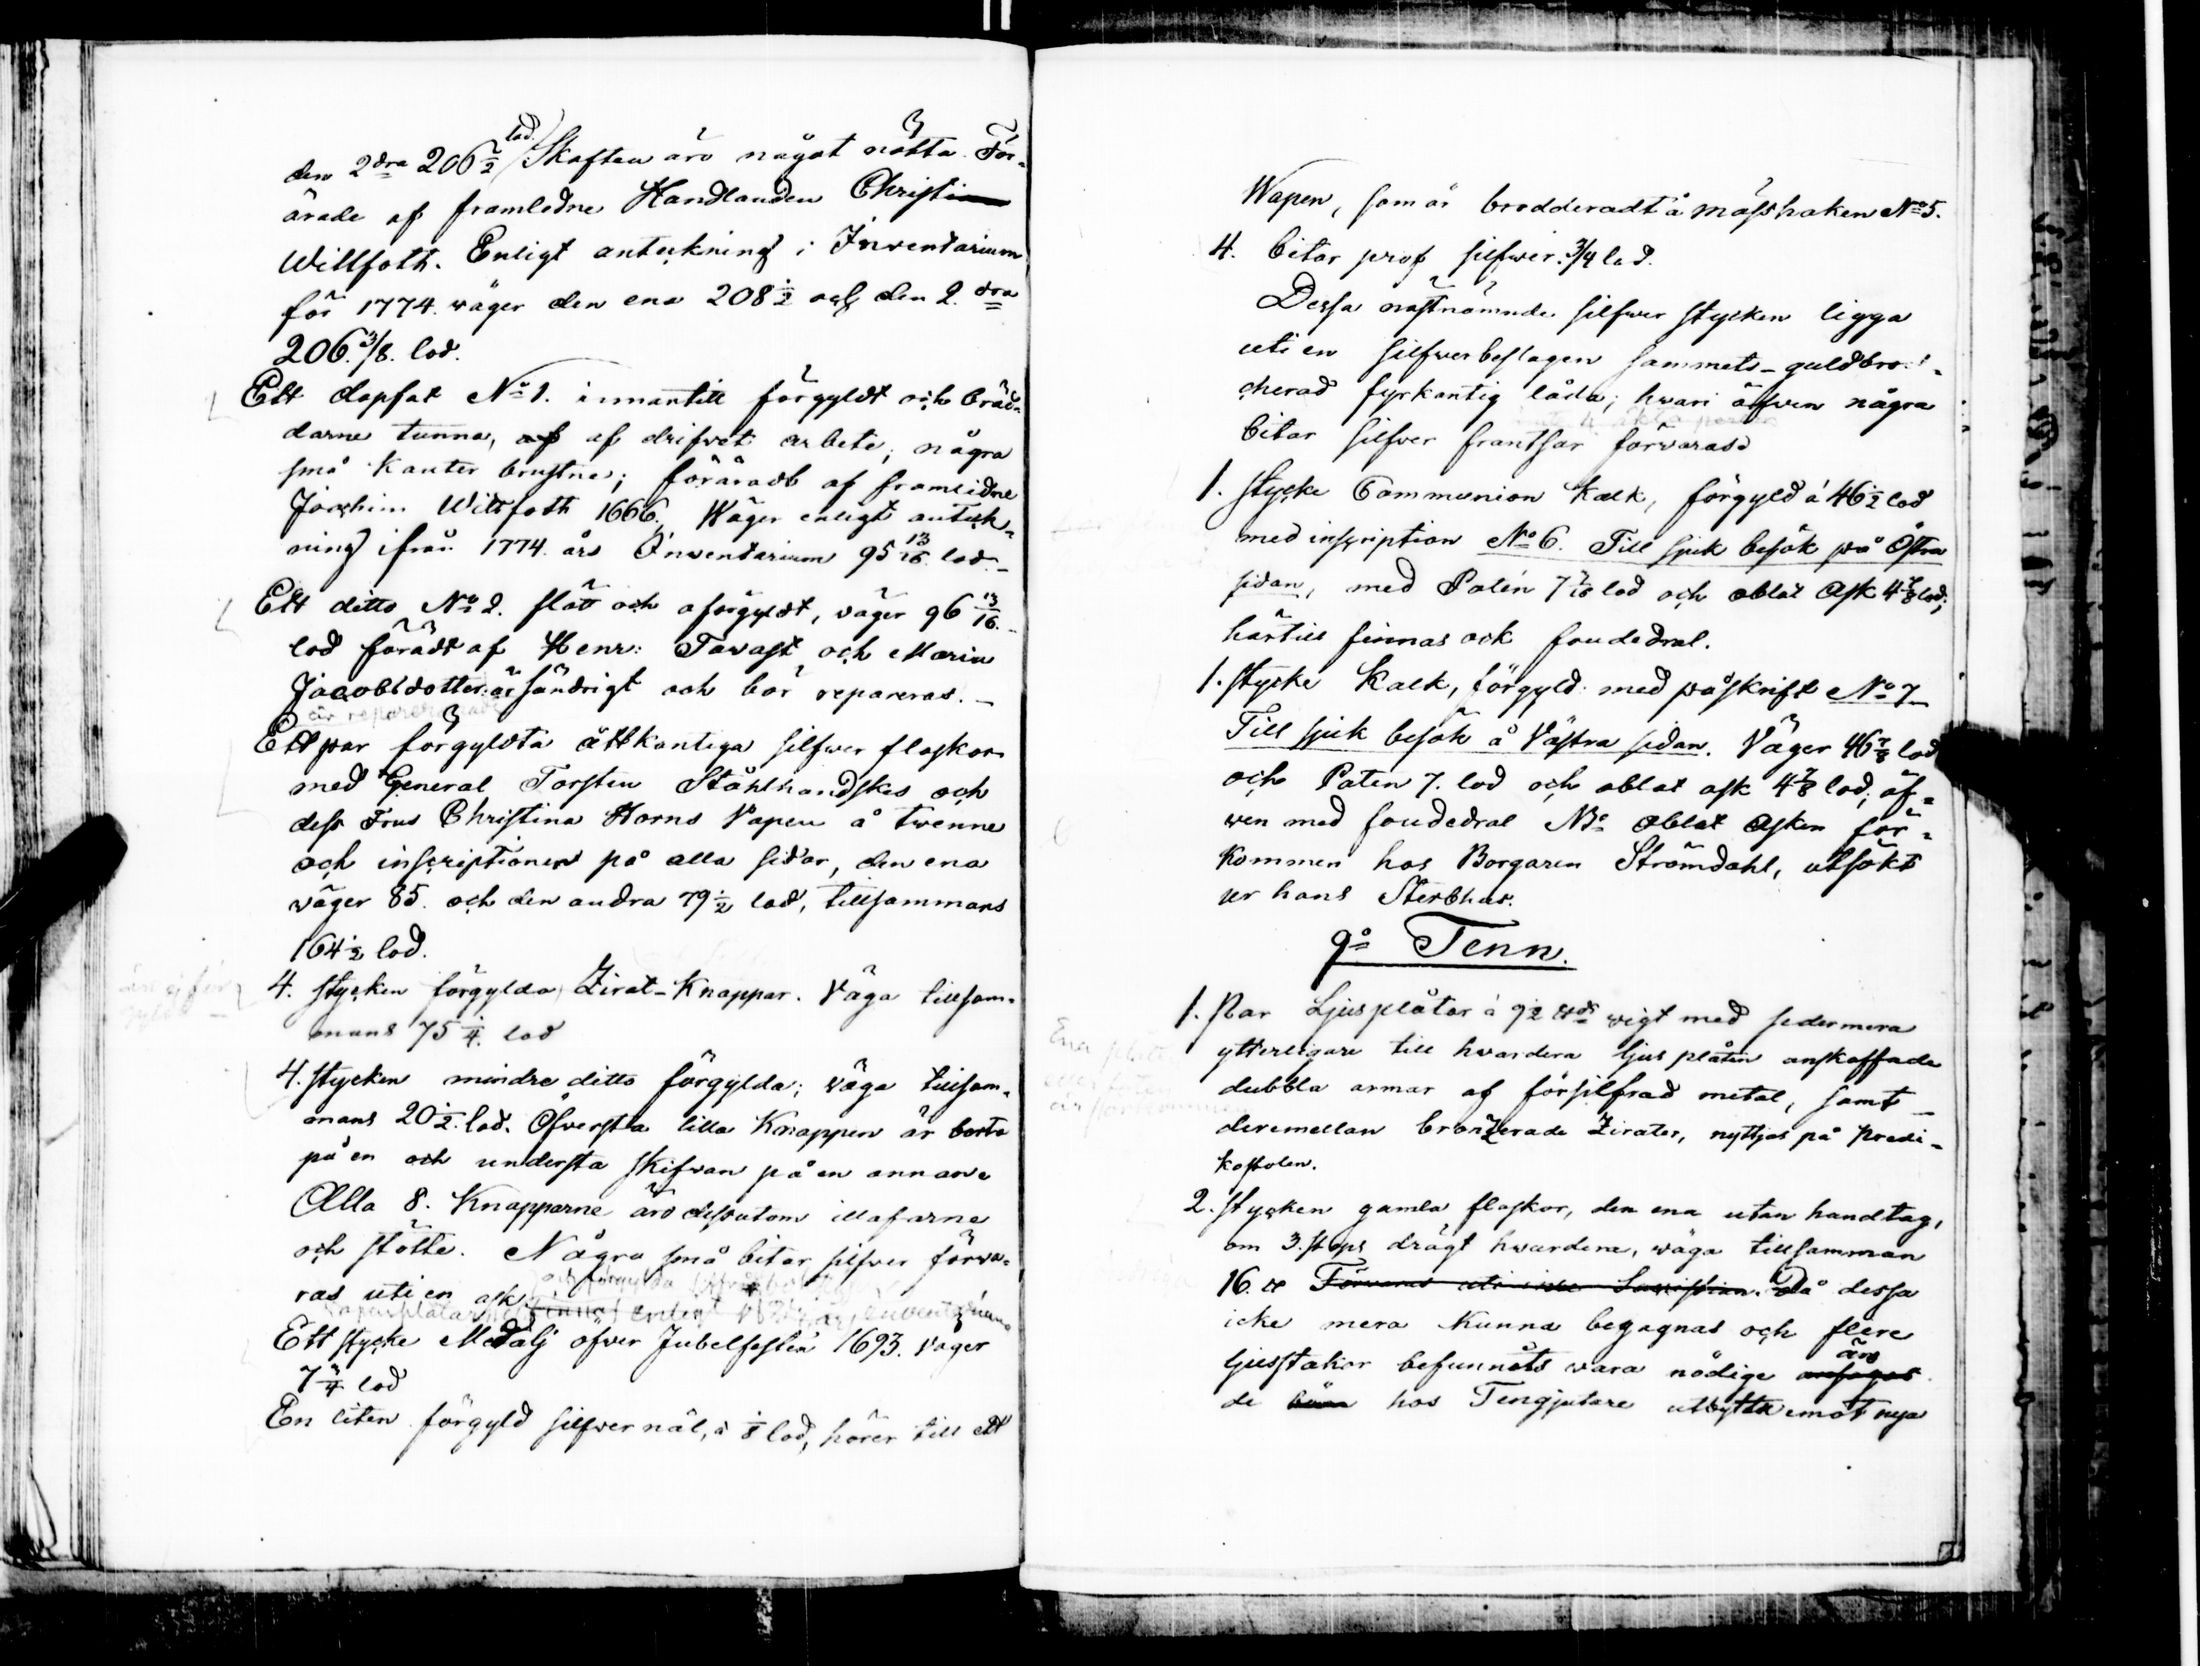 den 2dra 206 1/2 lod. Skaften äro något nötta. För-
ärade af framledne Handlanden Christi
Willfoth. Enligt anteckning i Inventarium
för 1774. wäger den ena 208 1/2 och den 2.dra
206. 3/8. lod.
Ett dopfat No 1. innantill förgyldt och bräd-
darne tunna, af af drifvet arbete, några
små Kanter brustne; föräradt af framlidne
Joachim Wittfoth 1666. Wäger enligt anteck-
ning ifrån 1774 års Inventarium 95 13/16. lod._
Ett ditto No 2. slätt och oförgyldt, väger 96 13/16._
lod förädt af Henr: Tavast och Maria
Jacobsdotter: är söndrigt och bör repareras._
är reparerad
Ett par förgyldta åttkantiga silfwer flaskor
med General Torsten Stålhandskes och
dess Frus Christina Horns Vapen å twenne
och inscriptioner på alla sidor, den ena
väger 85. och den andra 79 1/2 lod, tillsammans
164 1/2 lod.
4. stycken förgylda Zirat-Knappar. Väga tillsam-
mans 75 1/4. lod
4. stycken mindre ditto förgylda; väga tillsam-
mans 20 1/2. lod. Öfversta lilla Knappen är borta
på en och understa skifvan på en annan
Alla 8. Knapparne äro dessutom illafarne
och stötte. Några små bitar silfver förwa-
ras uti en ask
finnas enligt Inventarium
Ett stycke Medalj öfver Jubelfesten 1693. väger
7 3/4 lod
En liten förgyld silfver nål, à 1/8 lod, hörer till ett
Wapen, som är brodderadt å mässhaken No 5.
4. bitar prof silfwer. 3/4 lod.
Dessa nästnämnde silfwer stycken ligga
uti en silfwerbeslagen sammets-guldbro-
cherad fyrkantig låda; hvari äfwen några
bitar silfver frantsar förvaras
1. stycke Communion Kalk, förgyld à 46 1/2 lod
med inscription No 6. Till sjuk besök på Östra
sidan, med Patén 7 7/16 lod och oblat Ask 4 7/8 lod;
härtill finnas ock foudedral.
1. stycke Kalk, förgyld med påskrift No 7_
Till sjuk besök å Västra sidan. Väger 46 7/8 lod
och Paten 7. lod och oblat ask 4 7/8 lod; äf-
wen med foudedral NB. oblat Asken för-
kommen hos Borgaren Strömdahl, utsökt
ur hans Sterbhus.
9o Tenn.
1. Par Ljusplåtar à 9 1/2 wigt med sedermera
ytterligare till hvardera ljus plåten anskaffade
dubbla armar af försilfrad metal, samt_
deremellan bronzerade Zirater, nyttjas på Predi-
kostolen.
2. stycken gamla flaskor, den ena utan handtag,
om 3. stops drägt hwardera, wäga tillsamman
16. ℔ Förvaras uti Sacristian. Då dessa
icke mera Kunna begagnas och flere
ljusstakar befunnets wara nödige äro
de hos Tengjutare utbytta emot nya